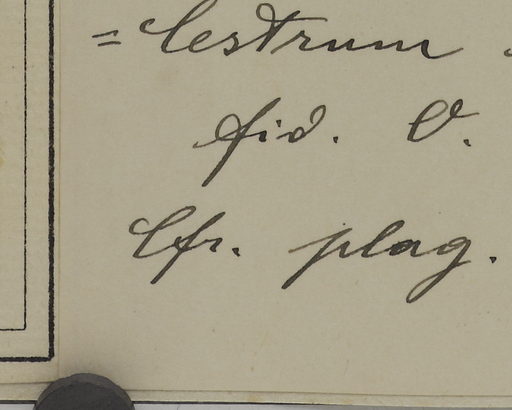 = Cestrum
fid. O.
Cfr. plag.